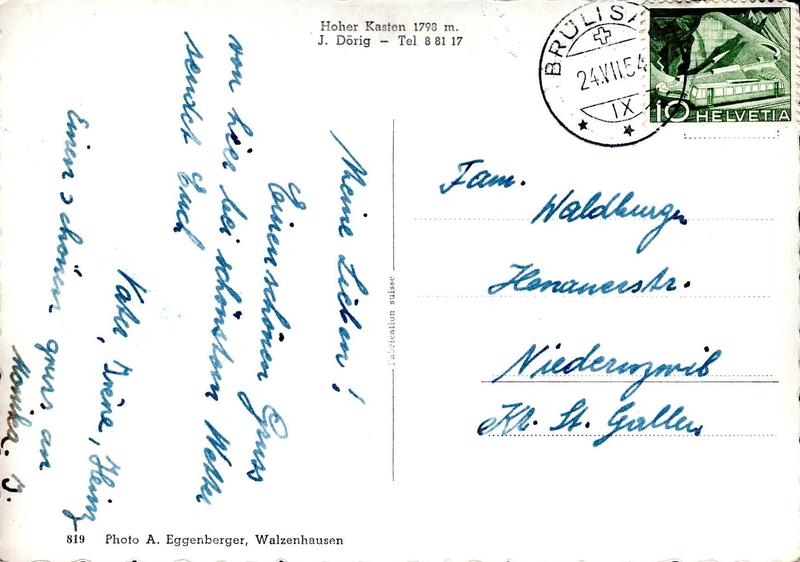 Hoher Kasten 1798 m.
J. Dörig – Tel 8 81 17
Meine Lieben!
Einen schönen Gruss
von hier bei schönstem Wetter
sendet Euch
Irène, Heinz
Einen schönen gruss an
Monika.
BRÜLISA
24.VII.54
IX
10 HELVETIA
Fam.
Waldburger
Henauerstr.
Niederuzwil
Kt. St. Gallen
Fabrication suisse
819 Photo A. Eggenberger, Walzenhausen